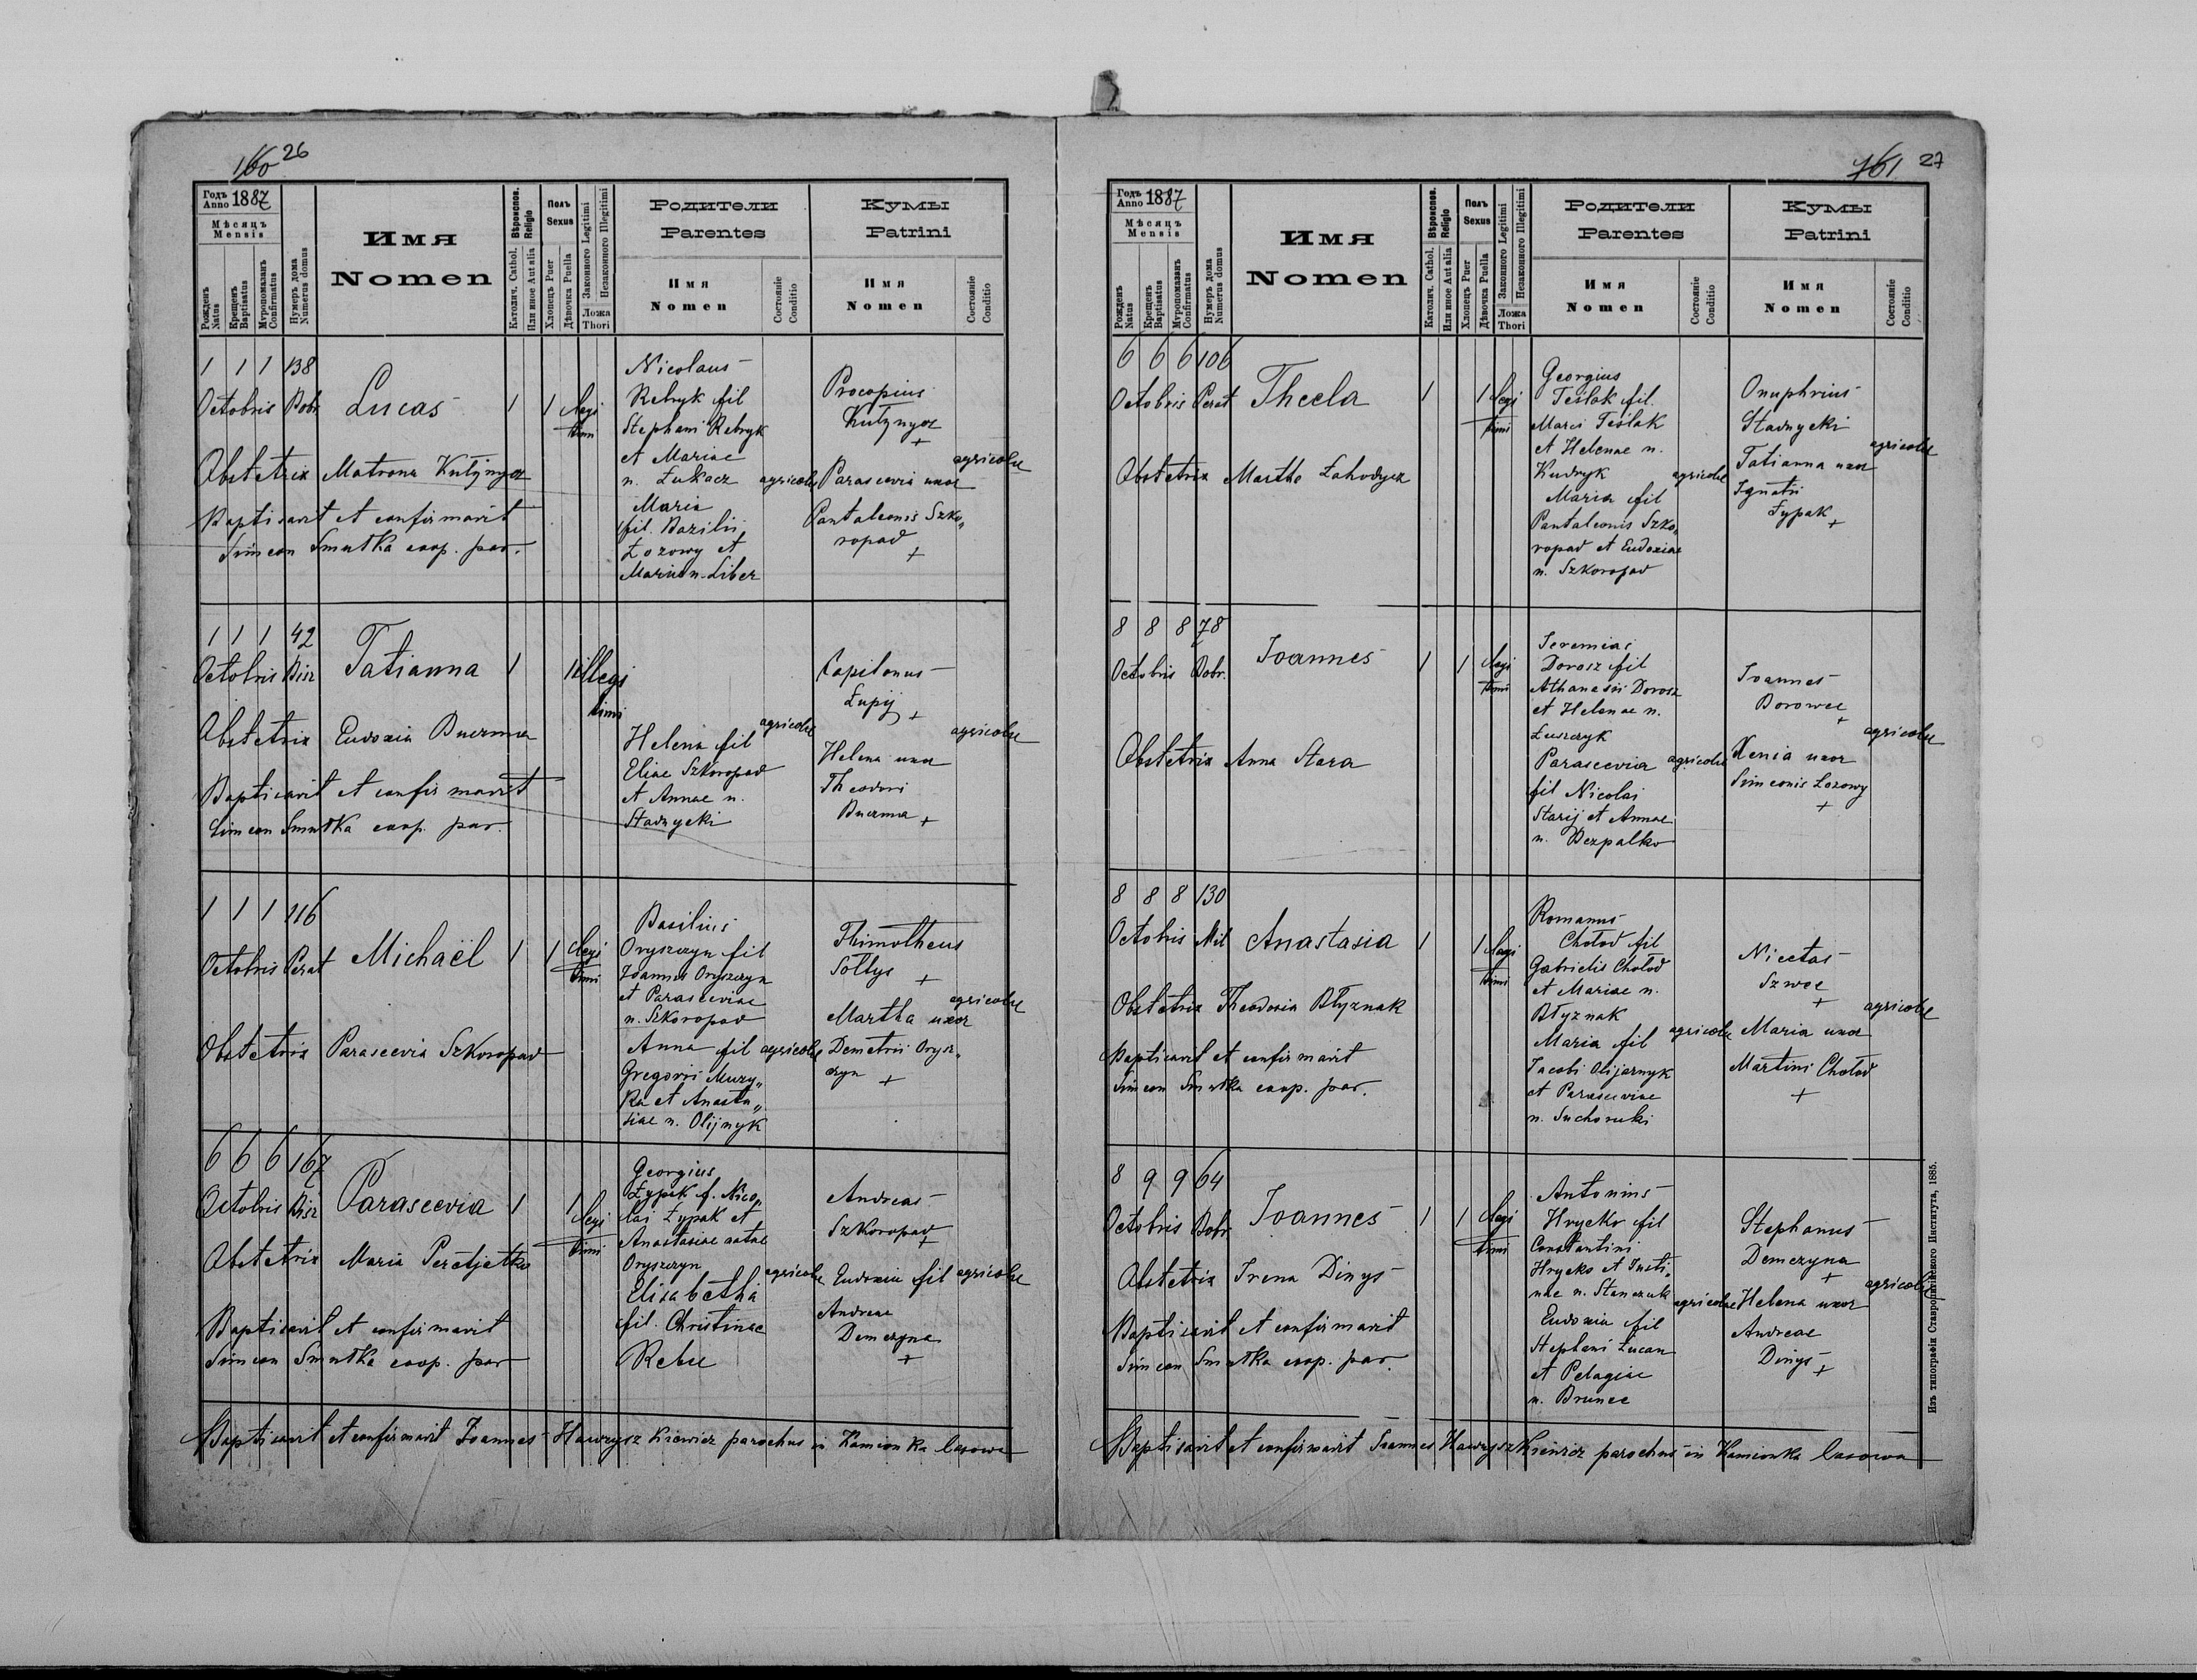 160 26
Годъ Anno 1887
Мѣсяцъ
Mensis
Рожденъ Natus
Крещенъ Baptisatus
Мѵропомазанъ Confirmatus
Нумеръ дома Numerus domus
Имя
Nomen
Вѣроиспов. Religio
Католич. Cathol.
Или иное Aut alia
Полъ Sexus
Хлопецъ Puer
Дѣвочка Puella
Законного Legitimi
Незаконного Illegitimi
Ложа Thori
Родители
Parentes
Имя
Nomen
Состояніе Conditio
Кумы
Patrini
Имя
Nomen
Состояніе Conditio
1 1 1 138
Octobris Dobr
Lucas
1 1 legi
timi
Nicolaus
Rebryk fil
Stephani Rebryk
et Mariae
n. Łukacz
Maria
fil. Bazilii
Łozowy et
Mariae n. Liber
agricolae
Procopius
Kutynycz
+
Parascevia uxor
Pantaleonis Szko„
ropad
+
agricolae
Obstetrix Matrona Kutynycz
Baptisavit et confirmavit
Simeon Smutka coop. par.
1 1 1 42
Octobris Bisz
Tatianna
1 1 illegi
timi
Helena fil
Eliae Szkoropad
et Annae n.
Stadnycki
agricolae
Capitonus
Łupij
+
Helena uxor
Theodori
Buczma +
agricolae
Obstetrix Eudoxia Buczma
Baptisavit et confirmavit
Simeon Smutka coop. par.
1 1 1 116
Octobris Perat
Michaël
1 1 legi
timi
Basilius
Oryszczyn fil
Joannis Oryszczyn
et Parasceviae
n. Szkoropad
Anna fil
Gregorii Muzy„
ka et Anasta„
siae n. Olijnyk
agricolae
Thimotheus
Sołtys
+
Martha uxor
Demetrii Orysz„
czyn +
agricolae
Obstetrix Parascevia Szkoropad
6 6 6 167
Octobris Bisz
Parascevia
1 1 legi
timi
Georgius
Łypak f. Nico„
lai Łypak et
Anastasiae natae
Oryszczyn
Elisabetha
fil. Christinae
Rebec
agricolae
Andreas
Szkoropad
+
Eudoxia fil
Andreae
Demczyna
+
agricolae
Obstetrix Maria Peretjatko
Baptisavit et confirmavit
Simeon Smutka coop. par
Baptisavit et confirmavit Joannes Hawryszkiewicz parochus in Kamionka lasowa
161 27
Годъ Anno 1887
Мѣсяцъ
Mensis
Рожденъ Natus
Крещенъ Baptisatus
Мѵропомазанъ Confirmatus
Нумеръ дома Numerus domus
Имя
Nomen
Вѣроиспов. Religio
Католич. Cathol.
Или иное Aut alia
Полъ Sexus
Хлопецъ Puer
Дѣвочка Puella
Законного Legitimi
Незаконного Illegitimi
Ложа Thori
Родители
Parentes
Имя
Nomen
Состояніе Conditio
Кумы
Patrini
Имя
Nomen
Состояніе Conditio
6 6 6 106
Octobris Perat
Thecla
1 1 legi
timi
Georgius
Teślak fil.
Marci Teślak
et Helenae n.
Kudryk
Maria fil
Pantaleonis Szko„
ropad et Eudoxiae
n. Szkoropad
agricolae
Onuphrius
Stadnycki
Tatianna uxor
Ignatii
Łypak
+
agricolae
Obstetrix Martha Lahodycz
8 8 8 78
Octobris Dobr.
Joannes
1 1 legi
timi
Jeremias
Dorosz fil
Athanasii Dorosz
et Helenae n.
Łuszczyk
Parascevia
fil Nicolai
Starij et Annae
n. Bezpalko
agricolae
Joannes
Borowec
+
Xenia uxor
Simeonis Lozowy
+
agricolae
Obstetrix Anna Stara
8 8 8 130
Octobris Mil
Anastasia
1 1 legi
timi
Romanus
Chołod fil
Gabrielis Chołod
et Mariae n.
Błyznak
Maria fil
Jacobi Olijarnyk
et Parasceviae
n. Suchoruki
agricolae
Nicetas
Szwec
+
Maria uxor
Martini Chołod
+
agricolae
Obstetrix Theodosia Błyznak
Baptisavit et confirmavit
Simeon Smutka coop. par.
8 9 9 64
Octobris Dobr
Joannes
1 1 legi
timi
Antonius
Hrycko fil
Constantini
Hrycko et Justi„
nae n. Stanczuk
Eudoxia fil
Stephani Łucan
et Pelagiae
n. Brunec
agricolae
Stephanus
Demczyna
+
Helena uxor
Andreae
Dinys
+
agricolae
Obstetrix Irena Dinys
Baptisavit et confirmavit
Simeon Smutka coop. par.
Baptisavit et confirmavit Joannes Hawryszkiewicz parochus in Kamionka lasowa
Изъ типографіи Ставропигійского Института, 1885.